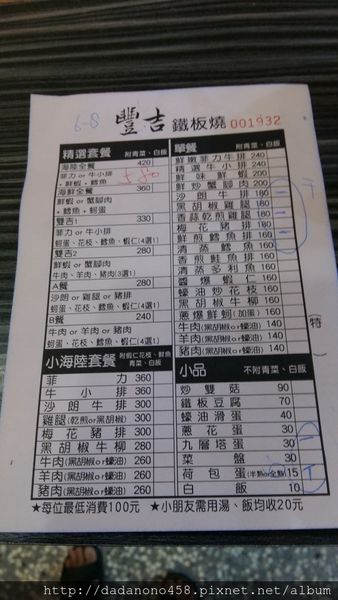 6-8
豐吉 鐵板燒 001932
精選套餐 附青菜、白飯
海陸全餐 420
菲力 or 牛小排 580
+鮮蝦+鱈魚
海鮮全餐 360
鮮蝦 or 蟹腳肉
+鱈魚+蚵蛋
雙吉1 330
菲力 or 牛小排
蚵蛋、花枝、鱈魚、蝦仁(4選1)
雙吉2 280
鮮蝦 or 蟹腳肉
牛肉、羊肉、豬肉(3選1)
A餐 280
沙朗 or 雞腿 or 豬排
蚵蛋、花枝、鱈魚、蝦仁(4選1)
B餐 240
牛肉 or 羊肉 or 豬肉
蚵蛋、花枝、鱈魚、蝦仁(4選1)
小海陸套餐 附蝦仁花枝、鮮魚 青菜、白飯
菲力 360
牛小排 360
沙朗牛排 300
雞腿(乾煎or黑胡椒) 300
梅花豬排 300
黑胡椒牛柳 280
牛肉(黑胡椒or蠔油) 260
羊肉(黑胡椒or蠔油) 260
豬肉(黑胡椒or蠔油) 260
單餐 附青菜、白飯
鮮嫩菲力牛排 240
精選牛小排 240
鮮味鮮蝦 200
鮮炒蟹腳肉 200
沙朗牛排 180
黑胡椒雞腿 180
香蒜乾煎雞腿 180
梅花豬排 180
鮮煎鱈魚排 160
清蒸鱈魚 160
香煎鮭魚排 160
清蒸多利魚 160
醬爆蝦仁 160
蠔油炒花枝 160
黑胡椒牛柳 160
蔥爆鮮蚵(加蛋) 160
牛肉(黑胡椒or蠔油) 140
羊肉(黑胡椒or蠔油) 140
豬肉(黑胡椒or蠔油) 140
(特)
小品 不附青菜、白飯
炒雙菇 90
鐵板豆腐 70
蠔油滑蛋 40
蔥花蛋 30
九層塔蛋 30
菜盤 30
荷包蛋(半熟or全熟) 15
白飯 10
★每位最低消費100元 ★小朋友需用湯、飯均收20元
http://dadanono458.pixnet.net/album